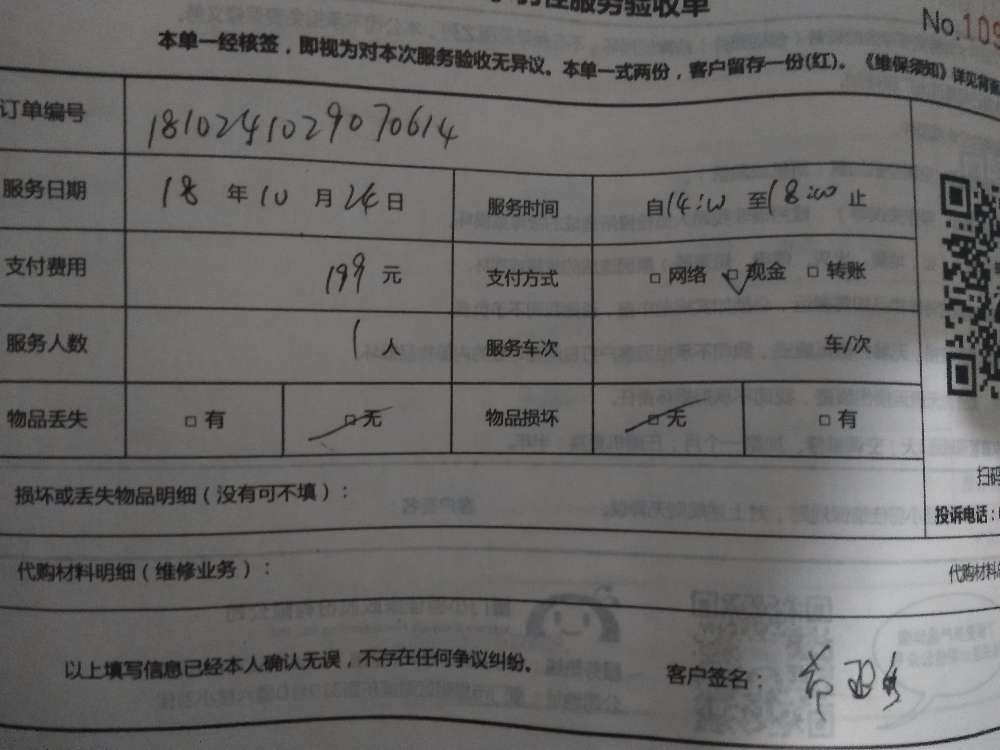 服务验收单
No.109
本单一经核签，即视为对本次服务验收无异议。本单一式两份，客户留存一份(红)。《维保须知》详见背面
订单编号 1810241029070614
服务日期 18 年 10 月 24 日 服务时间 自14:00 至18:00 止
支付费用 199 元 支付方式 □ 网络 □ 现金 □ 转账
服务人数 1 人 服务车次 车/次
物品丢失 □ 有 □ 无 物品损坏 □ 无 □ 有
扫码
损坏或丢失物品明细（没有可不填）：
投诉电话：
代购材料明细（维修业务）：
代购材料
以上填写信息已经本人确认无误，不存在任何争议纠纷。
客户签名：